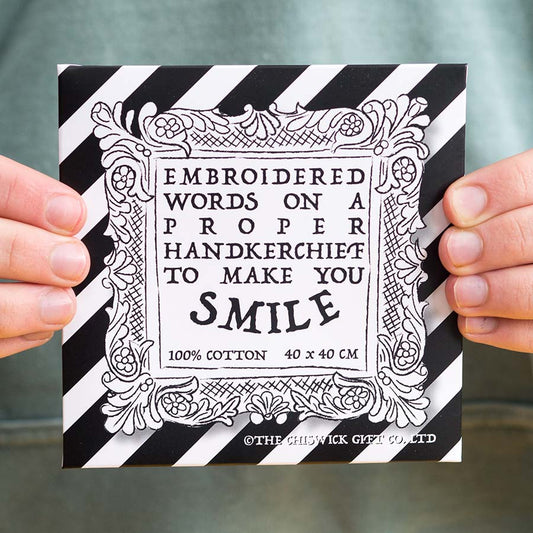 EMBROIDERED
WORDS ON A
PROPER
HANDKERCHIEF
TO MAKE YOU
SMILE
100% COTTON 40 X 40 CM
©THE CHISWICK GIFT CO. LTD